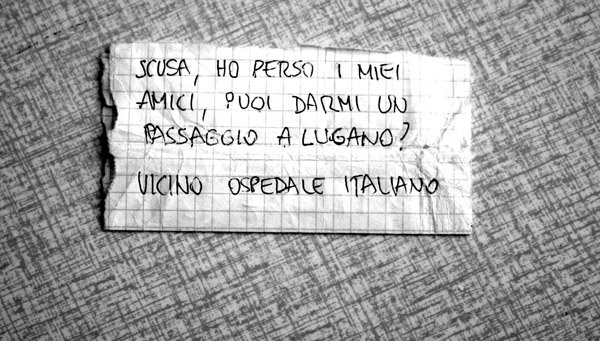 SCUSA, HO PERSO I MIEI
AMICI, PUOI DARMI UN
PASSAGGIO A LUGANO?
VICINO OSPEDALE ITALIANO